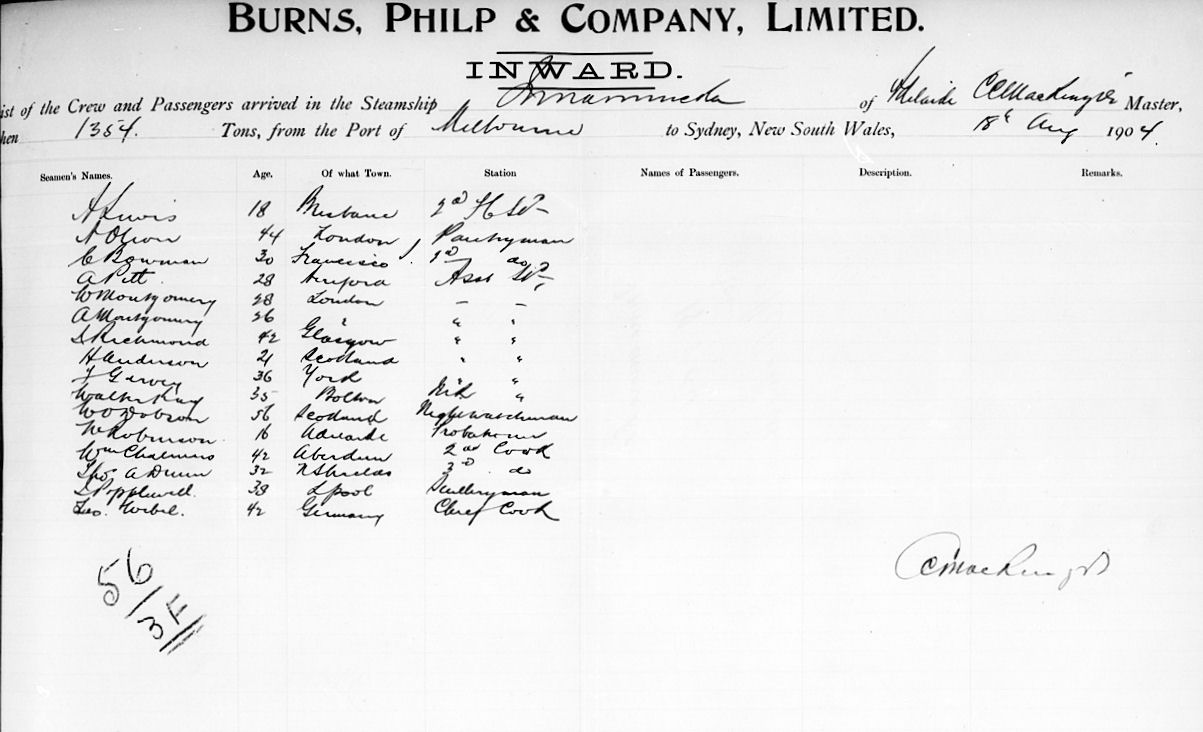 BURNS, PHILP & COMPANY, LIMITED.
INWARD.
ist of the Crew and Passengers arrived in the Steamship Innamincka of Adelaide C C Mackenzie Master,
hen 1354. Tons, from the Port of Melbourne to Sydney, New South Wales, 18th Aug 1904
Seamen's Names. Age. Of what Town. Station Names of Passengers. Description. Remarks.
A Lewis 18 Brisbane 2d
A Olson 44 London Pantryman
C Bowman 30 Francisco do
A Pitt 28 Asst
W Montgomery 28 London – –
A Montgomery 26 " " "
Richmond 42 Glasgow " "
H Anderson 21 Scotland " "
36 York "
Walter Kay 35 Bolton "
W Dobson 56 Scotland Nightwatchman
W Robinson 16 Adelaide Probationer
Wm Chalmers 42 Aberdeen 2nd Cook
Thos A Dunn 32 N Shields 3d do
Popplewell. 38 Lpool Sculleryman
Geo. 42 Germany Chief Cook
C Mackenzie
56
3F